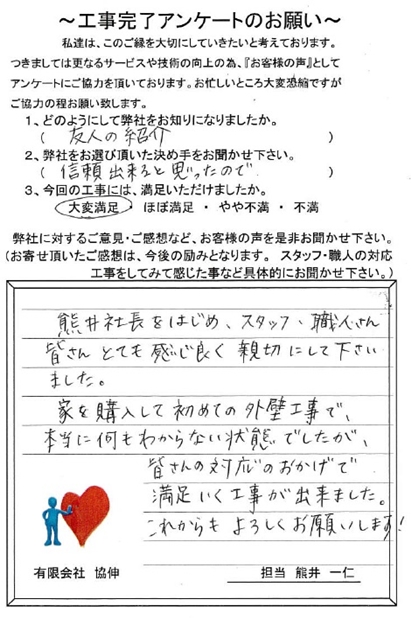 ～工事完了アンケートのお願い～
私達は、このご縁を大切にしていきたいと考えております。
つきましては更なるサービスや技術の向上の為、『お客様の声』として
アンケートにご協力を頂いております。お忙しいところ大変恐縮ですが
ご協力の程お願い致します。
1、どのようにして弊社をお知りになりましたか。
( 友人の紹介 )
2、弊社をお選び頂いた決め手をお聞かせ下さい。
( 信頼出来ると思ったので )
3、今回の工事には、満足いただけましたか。
大変満足 ・ ほぼ満足 ・ やや不満 ・ 不満
弊社に対するご意見・ご感想など、お客様の声を是非お聞かせ下さい。
(お寄せ頂いたご感想は、今後の励みとなります。 スタッフ・職人の対応
工事をしてみて感じた事など具体的にお聞かせ下さい。)
熊井社長をはじめ、スタッフ、職人さん
皆さん とても感じ良く 親切にして下さい
ました。
家を購入して初めての外壁工事で、
本当に何もわからない状態でしたが、
皆さんの対応のおかげで
満足いく工事が出来ました。
これからも よろしくお願いします!
有限会社 協伸
担当 熊井 一仁